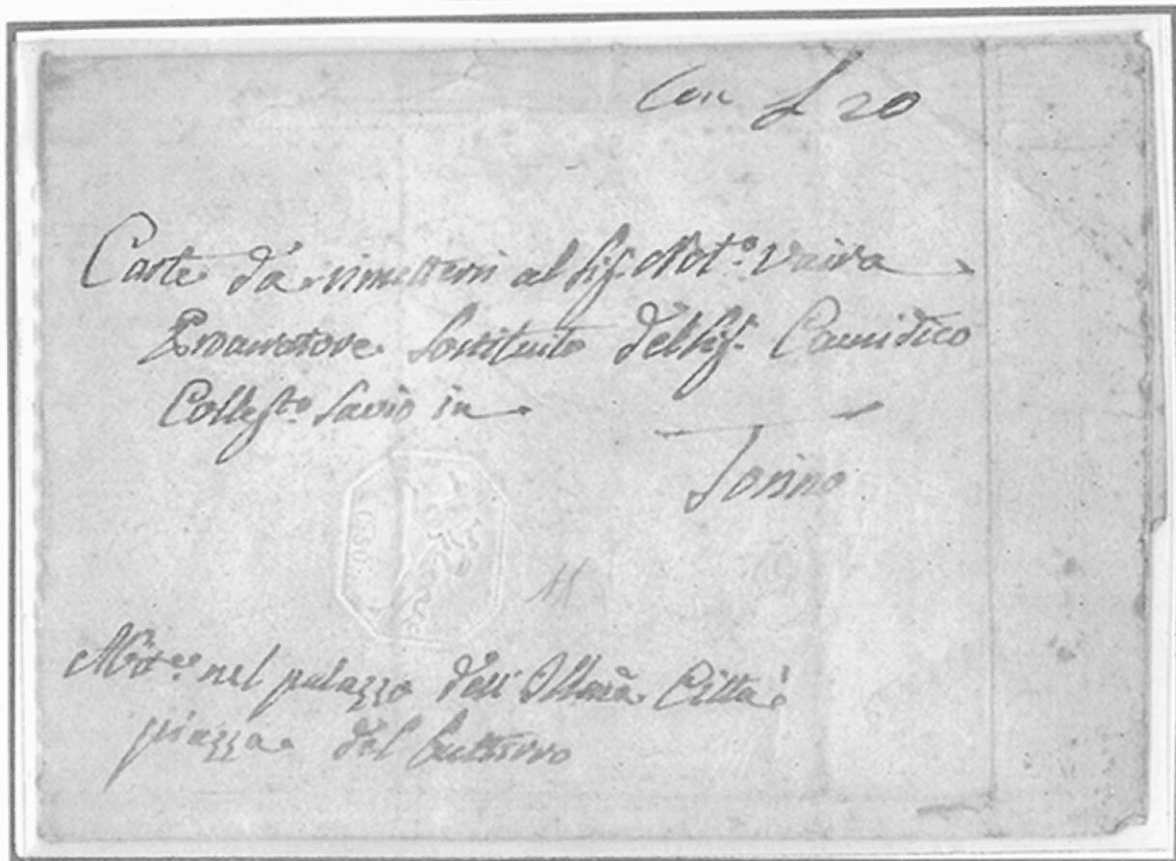 Con £ 20
Carte da rimettersi al Sig. Not.º Vaira
Procuratore Sostituito del Sig. Causidico
Colleg.to Savio in
Torino
nel palazzo dell'Illma Città
piazza del butturro